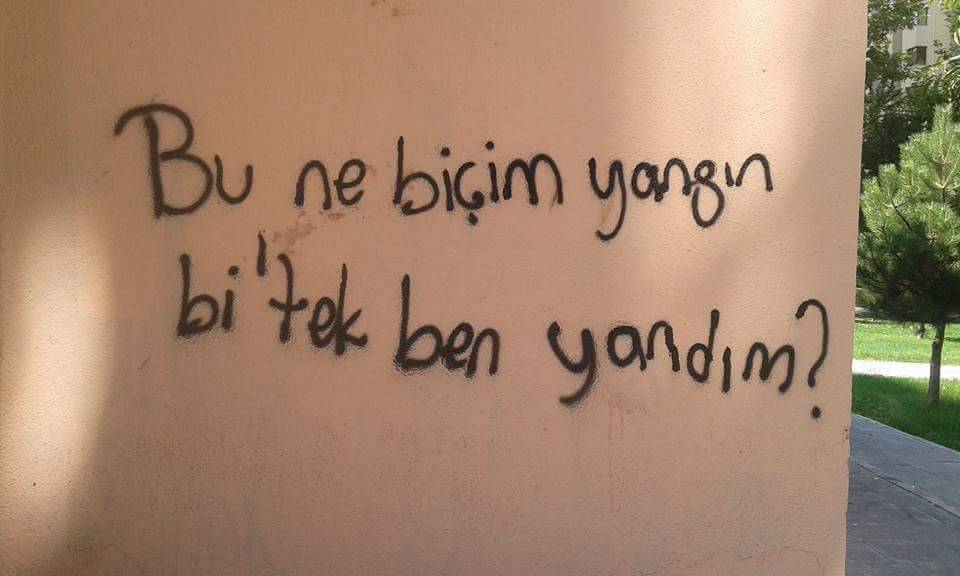 Bu ne biçim yangın
bi' tek ben yandım?